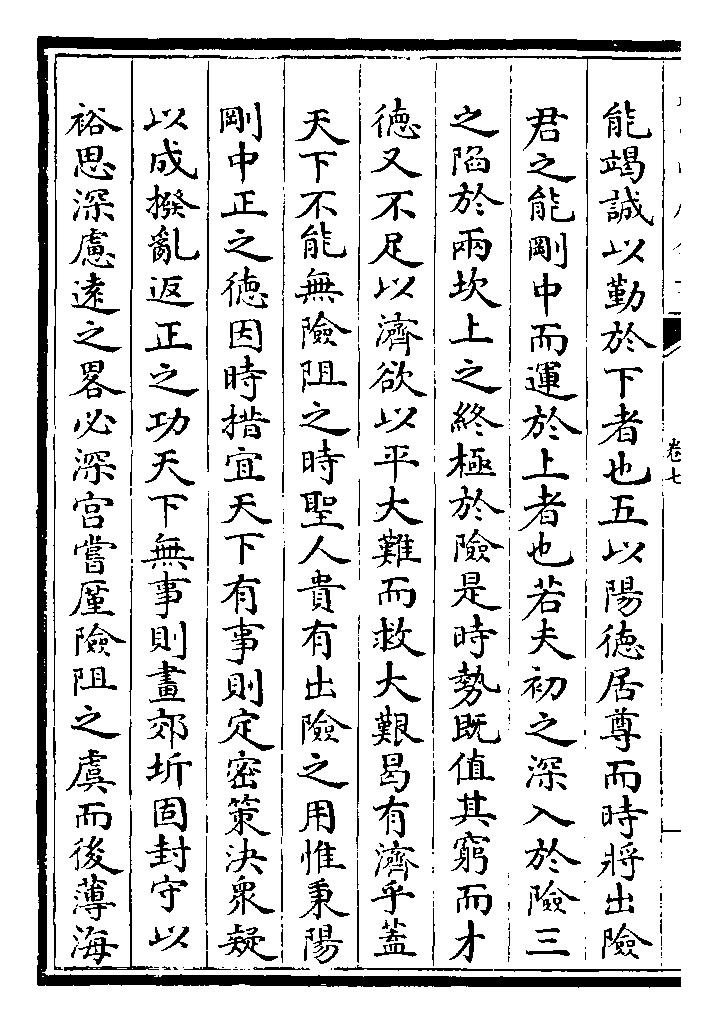 能竭誠以勤於下者也五以陽徳居尊而時將出險
君之能剛中而運於上者也若夫初之深入於險三
之陷於兩坎上之終極於險是時勢既值其窮而才
徳又不足以濟欲以平大難而救大艱曷有濟乎蓋
天下不能無險阻之時聖人貴有出險之用惟秉陽
剛中正之徳因時措宜天下有事則定密策決衆疑
以成撥亂返正之功天下無事則畫郊圻固封守以
裕思深慮遠之畧必深宫嘗厪險阻之虞而後薄海
卷七